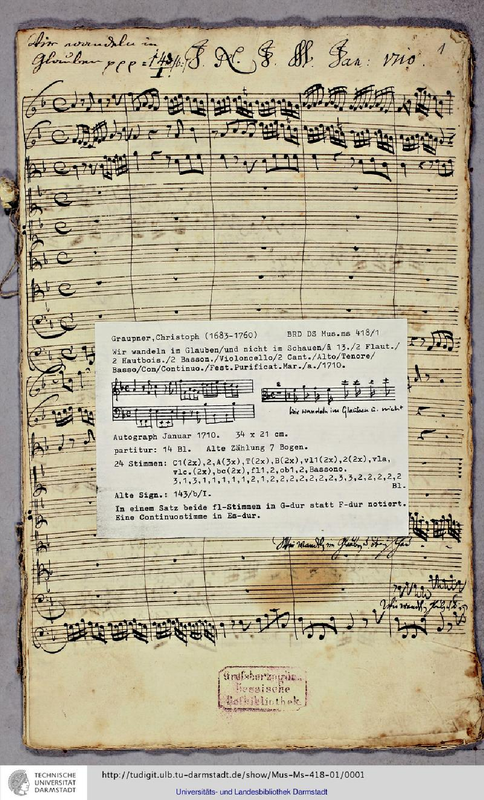 Wir wandeln in
Glauben ppp = 143/b.
Jan: 1710.
1
Graupner,Christoph (1683-1760) BRD DS Mus.ms 418/1
Wir wandeln im Glauben/und nicht im Schauen/â 13./2 Flaut./
2 Hautbois./2 Basson./Violoncello/2 Cant./Alto/Tenore/
Basso/Con/Continuo./Fest.Purificat.Mar./a./1710.
Wir wandeln im Glauben u. nicht
Autograph Januar 1710. 34 x 21 cm.
partitur: 14 Bl. Alte Zählung 7 Bogen.
24 Stimmen: C1(2x),2,A(3x),T(2x),B(2x),vl1(2x),2(2x),vla,
vlc.(2x),bc(2x),fl1,2,ob1,2,Bassono.
3,1,3,1,1,1,1,1,2,1,2,2,2,2,2,2,3,3,2,2,2,2,2
Bl.
Alte Sign.: 143/b/I.
In einem Satz beide fl-Stimmen in G-dur statt F-dur notiert.
Eine Continuostimme in Es-dur.
Großherzoglich
Hessische
Hofbibliothek
TECHNISCHE
UNIVERSITÄT
DARMSTADT
http://tudigit.ulb.tu-darmstadt.de/show/Mus-Ms-418-01/0001
Universitäts- und Landesbibliothek Darmstadt